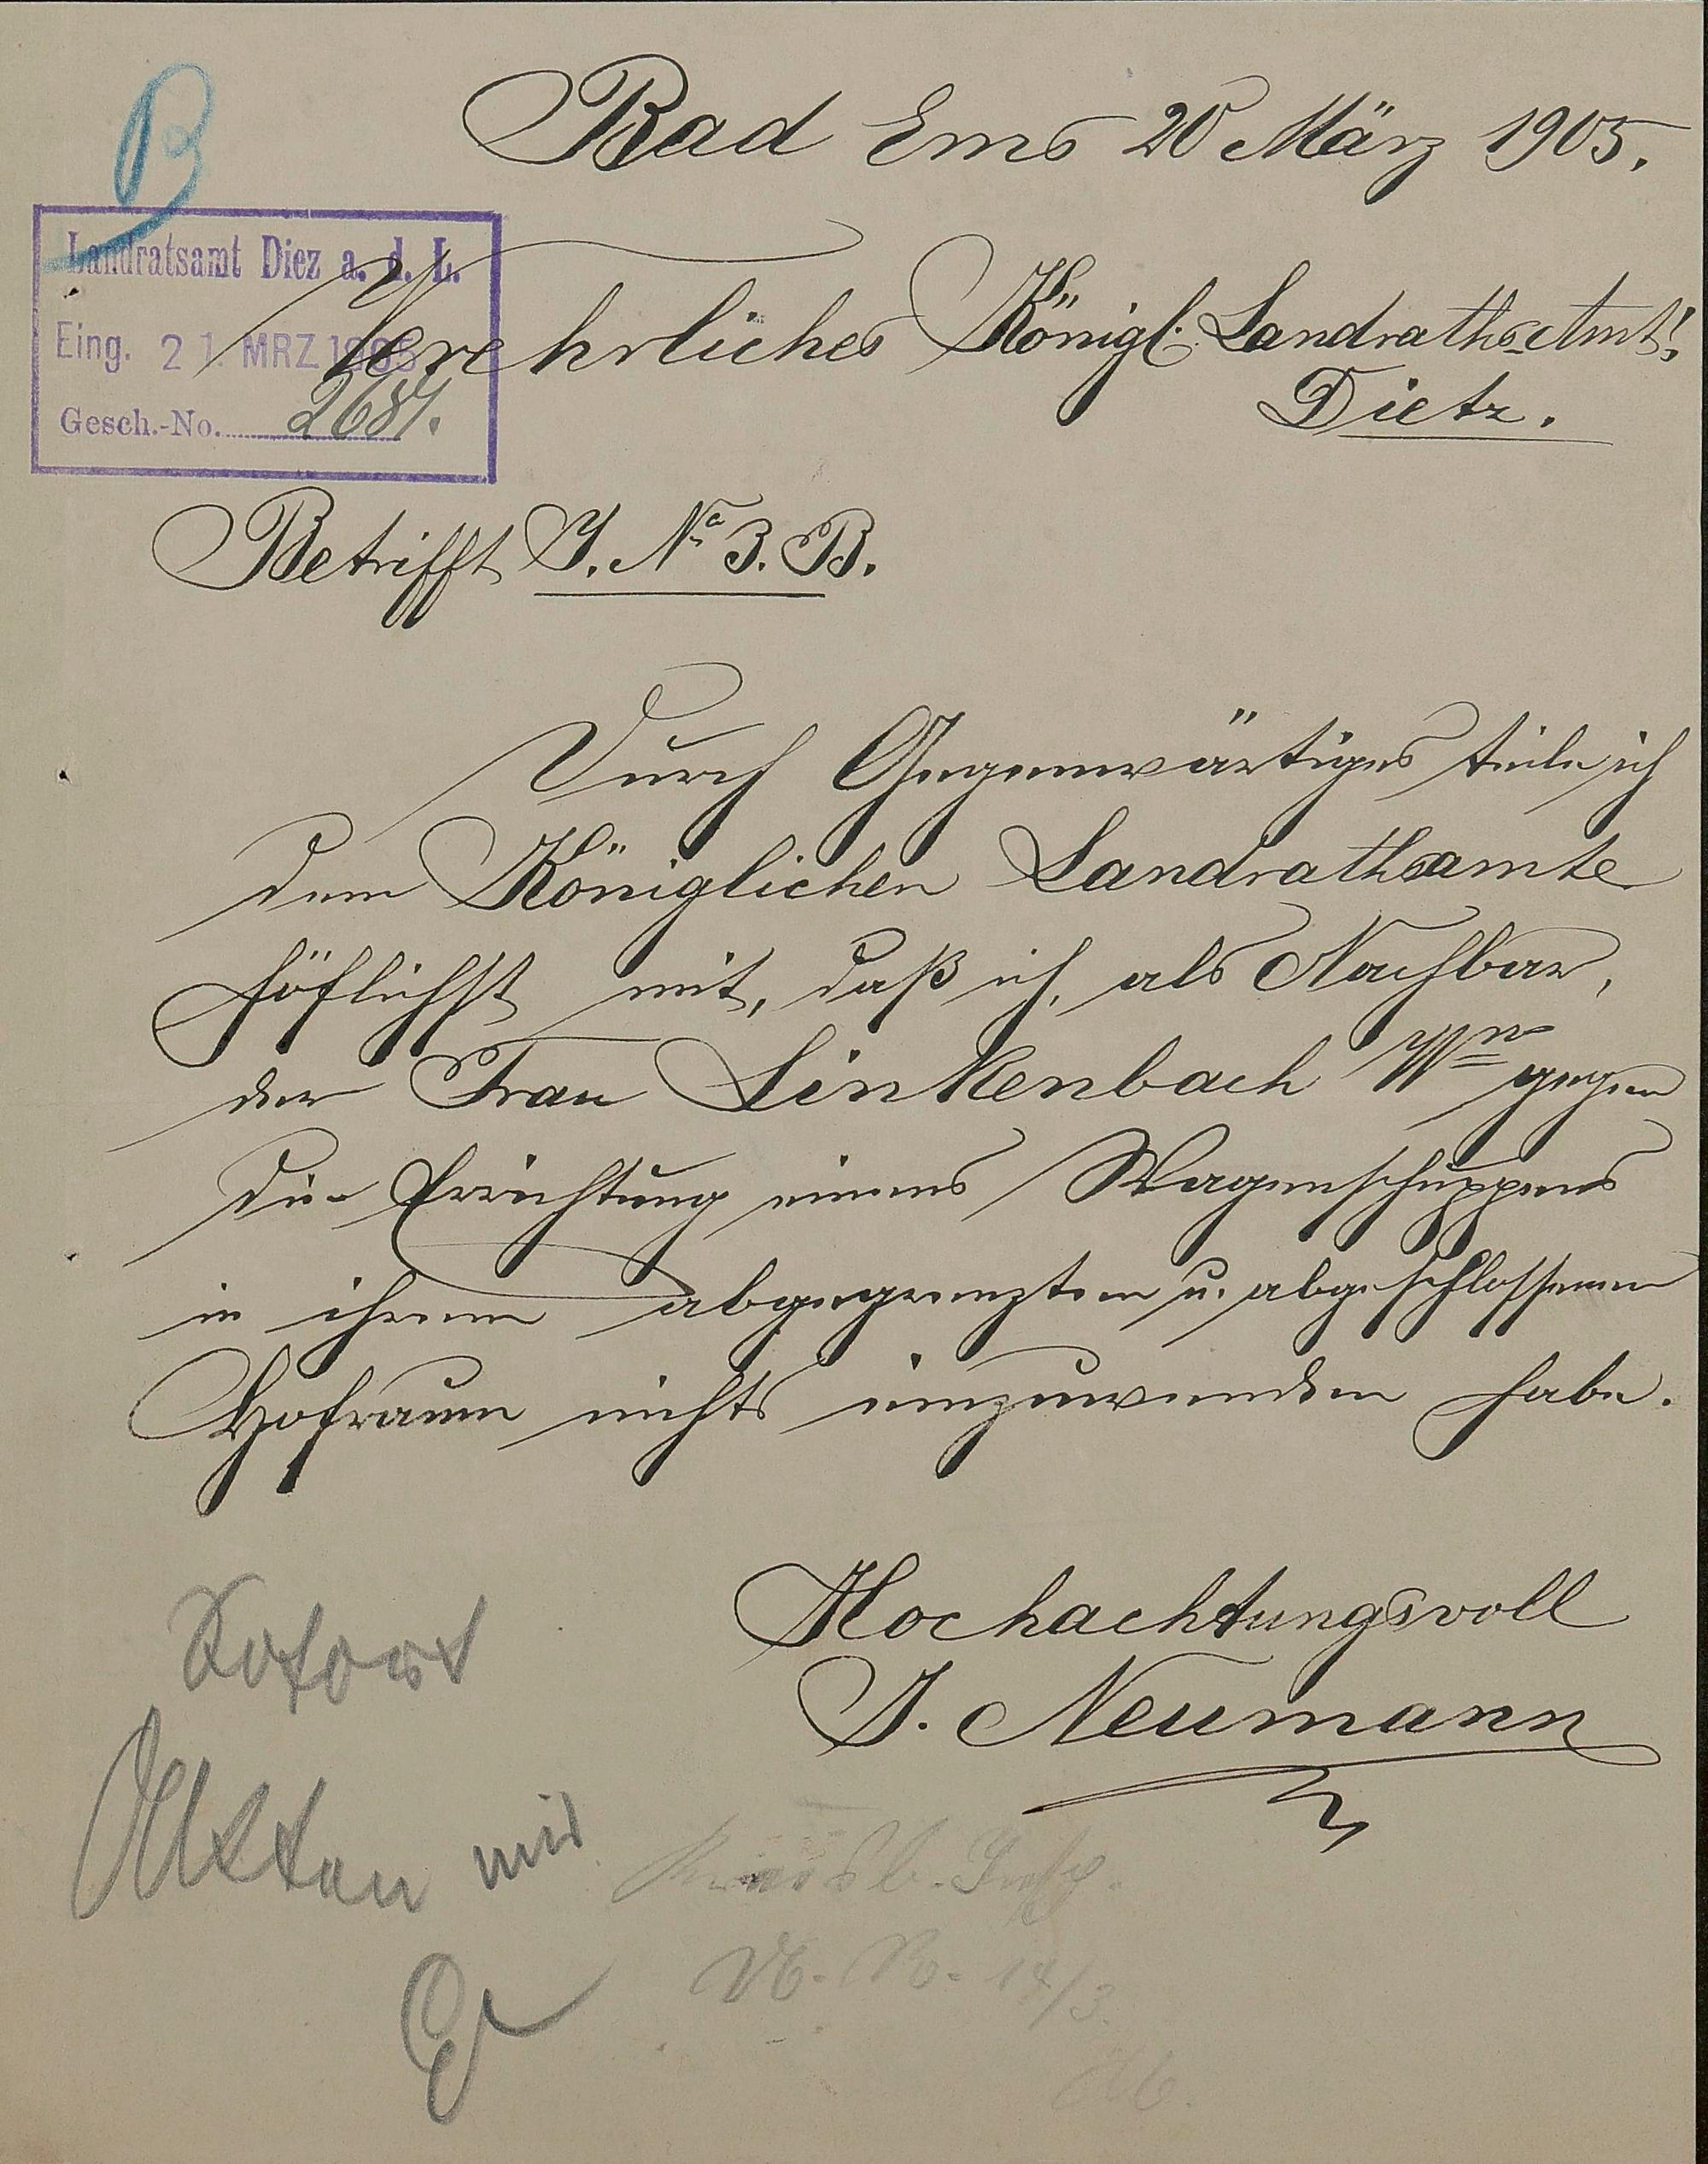 B
Bad Ems 20 März 1905.
Landratsamt Diez a. d. L.
Eing. 21. MRZ 1905
Gesch.-No. 2687.
Verehrliches Königl. Landraths-Amt!
Dietz.
Betrifft J. No 3. B.
Durch Gegenwärtiges teile ich
dem Königlichen Landrathsamte
höflichst mit, daß ich, als Nachbar,
der Frau Linkenbach Wwe gegen
die Errichtung eines Wagenschuppens
in ihrem abgegrenzten u. abgeschlossenen
Hofraum nichts einzuwenden habe.
Hochachtungsvoll
J. Neumann
Sofort
Akten mit
Kreisb. Insp.
14/3.